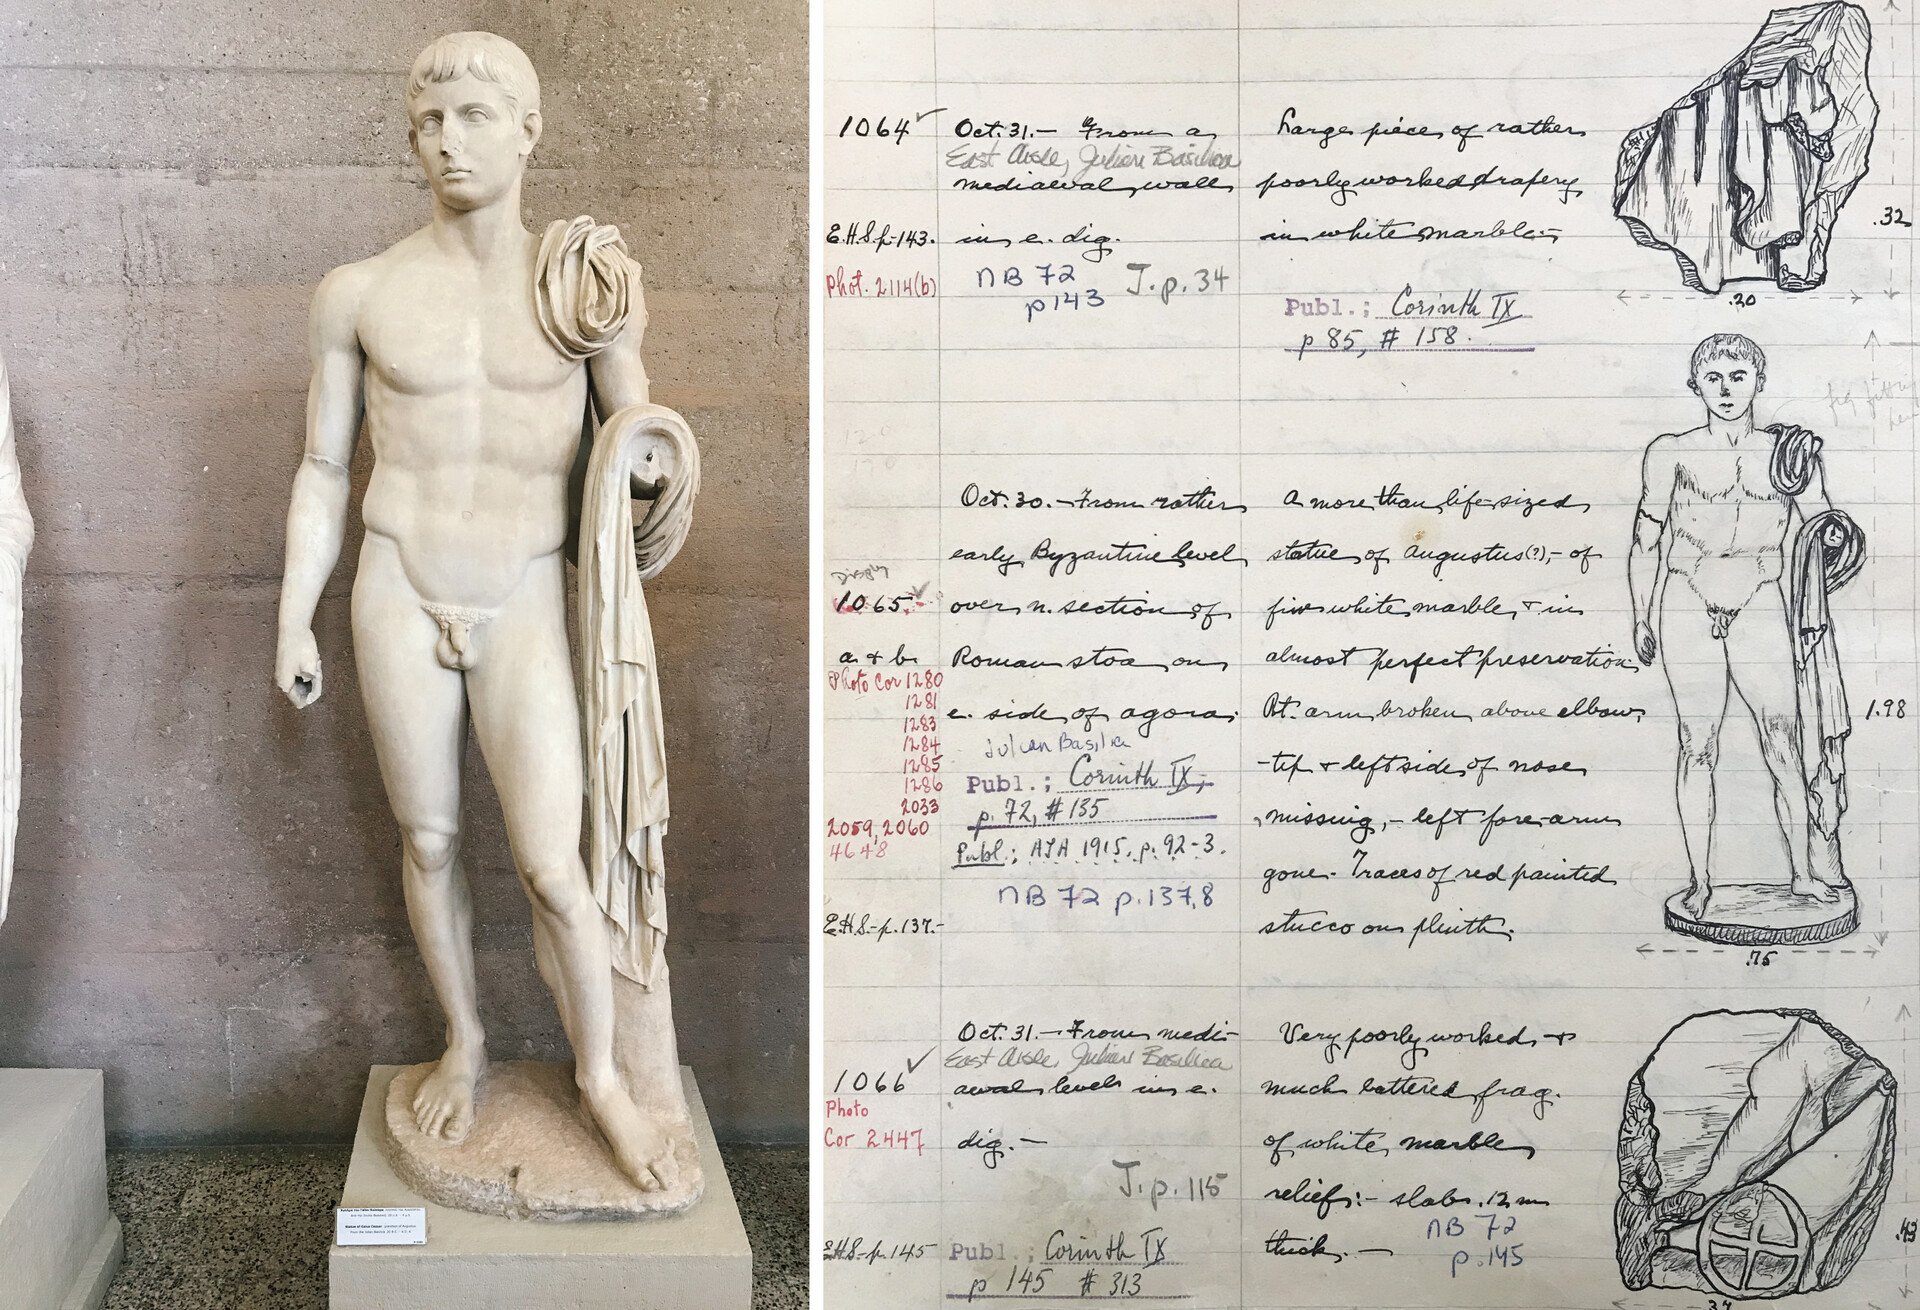 Statue of Gaius Caesar, grandson of Augustus.
1064
Oct. 31.- From a
East Aisle, Julian Basilica
mediaeval wall
in e. dig.
E.H.S. p.-143.
Phot. 2114(b)
NB 72
p 143
J. p. 34
Large piece of rather
poorly worked drapery
in white marble:-
Publ.; Corinth IX
p 85, # 158.
.32
.20
Display
1065.
a & b
Photo Cor 1280
1281
1283
1284
1285
1286
2033
2059, 2060
4648
E.H.S.- p. 137.-
Oct. 30.- From rather
early Byzantine level
over n. section of
Roman stoa on
e. side of agora;
Julian Basilia
Publ.; Corinth IX,
p. 72, # 135
Publ.; AJA 1915, p. 92-3.
NB 72 p. 137,8
A more than life-sized
statue of Augustus(?),- of
fine white marble, & in
almost perfect preservation.
Rt. arm broken above elbow,
-tip & left side of nose
missing,- left fore-arm
gone.- Traces of red painted
stucco on plinth.
1.98
.75
1066
Photo
Cor 2447
E.H.S.- p. 145
Oct. 31.- From medi-
East Aisle, Julian Basilica
aeval levels in e.
dig.-
J. p. 115
Publ.; Corinth IX
p 145 # 313
Very poorly worked &
much battered frag.
of white marble
relief:- slab .12 m
thick.-
NB 72
p. 145
.43
.34